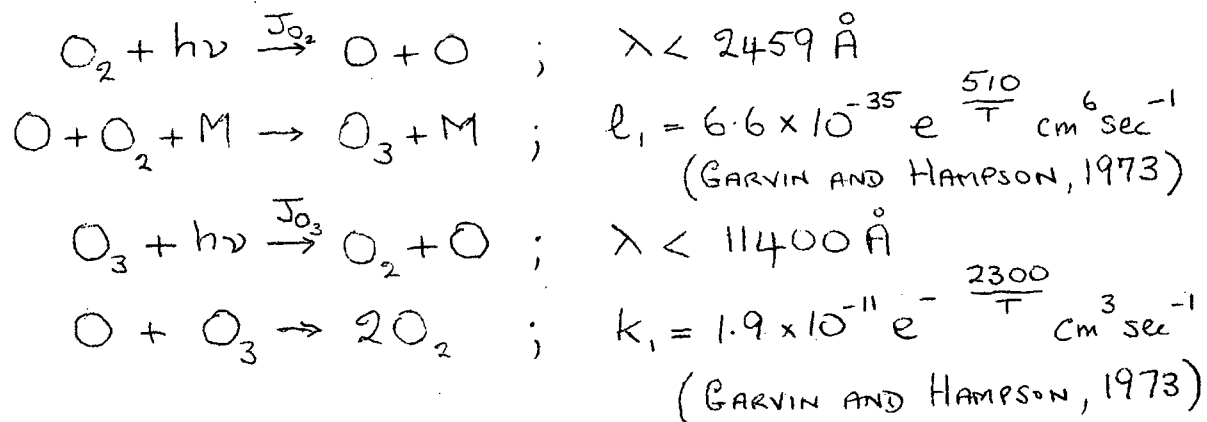 O₂ + hν —J_O₂→ O + O ; λ < 2459 Å
O + O₂ + M → O₃ + M ; ℓ₁ = 6.6 × 10⁻³⁵ e^(510/T) cm⁶ sec⁻¹
(GARVIN AND HAMPSON, 1973)
O₃ + hν —J_O₃→ O₂ + O ; λ < 11400 Å
O + O₃ → 2O₂ ; k₁ = 1.9 × 10⁻¹¹ e^(-2300/T) cm³ sec⁻¹
(GARVIN AND HAMPSON, 1973)